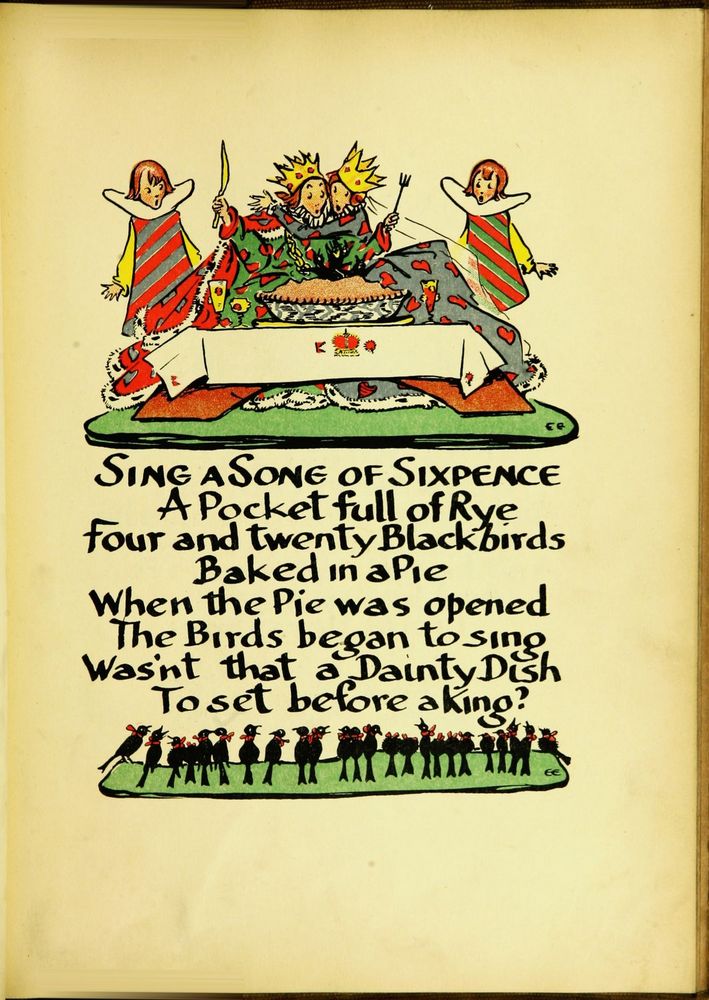 K Q
EE
SING A SONG OF SIXPENCE
A Pocket full of Rye
Four and twenty Blackbirds
Baked in a Pie
When the Pie was opened
The Birds began to sing
Was'nt that a Dainty Dish
To set before a king?
EE